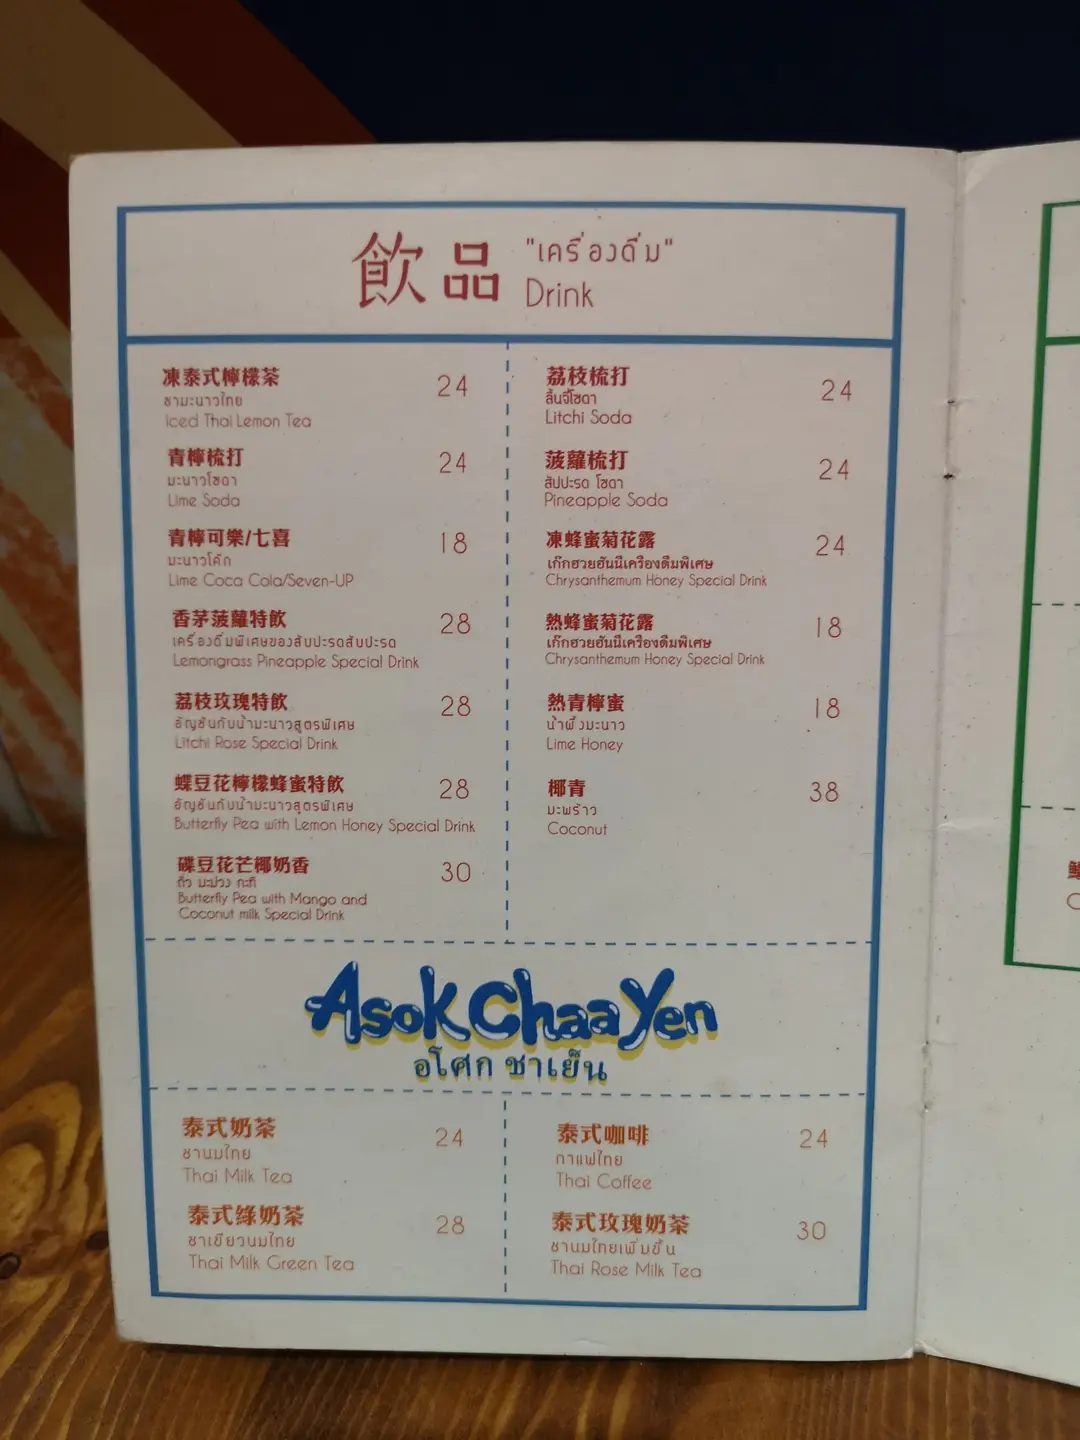 飲品
"เครื่องดื่ม"
Drink
凍泰式檸檬茶 24
ชามะนาวไทย
Iced Thai Lemon Tea
青檸梳打 24
มะนาวโซดา
Lime Soda
青檸可樂/七喜 18
มะนาวโค้ก
Lime Coca Cola/Seven-UP
香茅菠蘿特飲 28
เครื่องดื่มพิเศษของสับปะรดสับปะรด
Lemongrass Pineapple Special Drink
荔枝玫瑰特飲 28
อัญชันกับน้ำมะนาวสูตรพิเศษ
Litchi Rose Special Drink
蝶豆花檸檬蜂蜜特飲 28
อัญชันกับน้ำมะนาวสูตรพิเศษ
Butterfly Pea with Lemon Honey Special Drink
碟豆花芒椰奶香 30
ถั่ว มะม่วง กะทิ
Butterfly Pea with Mango and
Coconut milk Special Drink
荔枝梳打 24
ลิ้นจี่โซดา
Litchi Soda
菠蘿梳打 24
สัปปะรด โซดา
Pineapple Soda
凍蜂蜜菊花露 24
เก๊กฮวยฮันนี่เครื่องดื่มพิเศษ
Chrysanthemum Honey Special Drink
熱蜂蜜菊花露 18
เก๊กฮวยฮันนี่เครื่องดื่มพิเศษ
Chrysanthemum Honey Special Drink
熱青檸蜜 18
น้ำผึ้งมะนาว
Lime Honey
椰青 38
มะพร้าว
Coconut
Asok Chaa Yen
อโศก ชาเย็น
泰式奶茶 24
ชานมไทย
Thai Milk Tea
泰式綠奶茶 28
ชาเขียวนมไทย
Thai Milk Green Tea
泰式咖啡 24
กาแฟไทย
Thai Coffee
泰式玫瑰奶茶 30
ชานมไทยเพิ่มขึ้น
Thai Rose Milk Tea